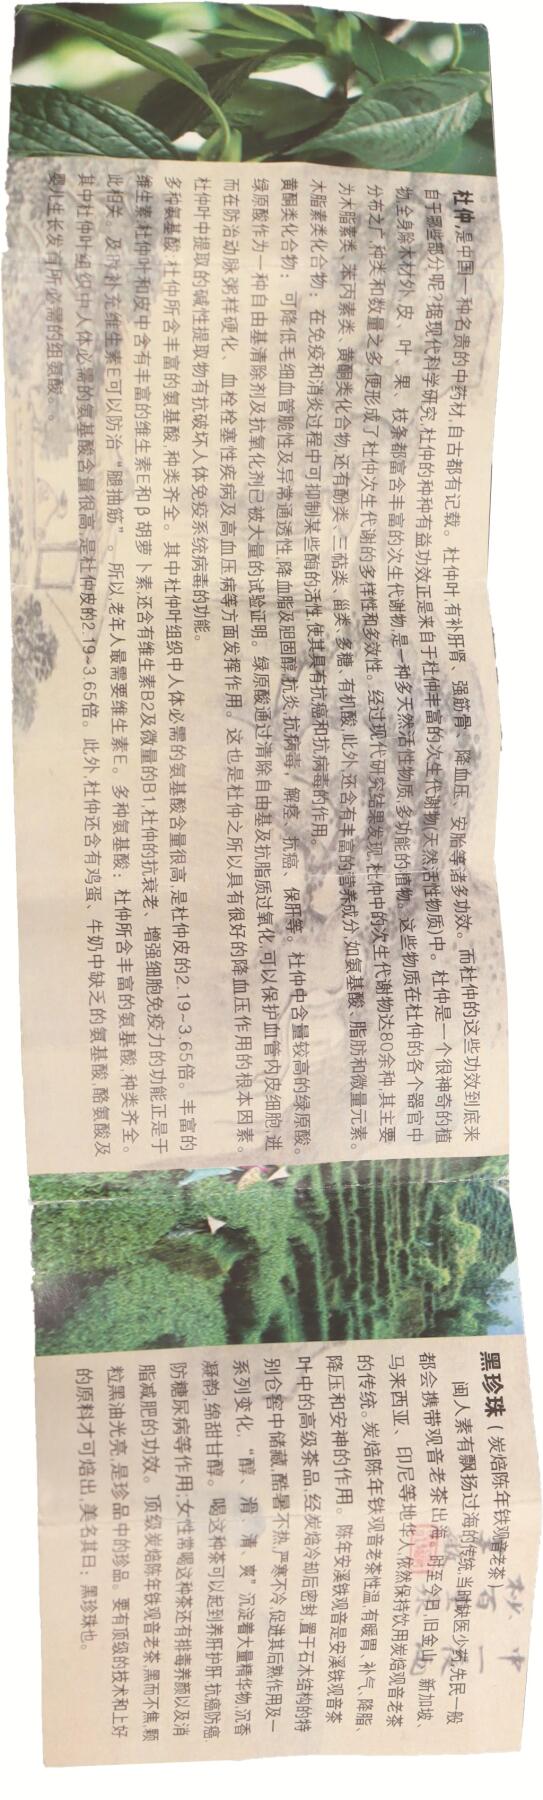 杜仲,是中国一种名贵的中药材,自古都有记载。杜仲叶,有补肝肾、强筋骨、降血压、安胎等诸多功效。而杜仲的这些功效到底来
自于哪些部分呢?据现代科学研究,杜仲的种种有益功效正是来自于杜仲丰富的次生代谢物(天然活性物质)中。杜仲是一个很神奇的植
物,全身除木材外,皮、叶、果、枝条都富含丰富的次生代谢物,是一种多天然活性物质,多功能的植物。这些物质在杜仲的各个器官中
分布之广,种类和数量之多,便形成了杜仲次生代谢的多样性和多效性。经过现代研究结果发现,杜仲中的次生代谢物达80余种,其主要
为木脂素类、苯丙素类、黄酮类化合物,还有酚类、三萜类、甾类、多糖、有机酸,此外,还含有丰富的营养成分,如氨基酸、脂肪和微量元素。
木脂素类化合物:在免疫和消炎过程中可抑制某些酶的活性,使其具有抗癌和抗病毒的作用。
黄酮类化合物:可降低毛细血管脆性及异常通透性,降血脂及胆固醇,抗炎,抗病毒,解痉、抗癌、保肝等。杜仲中含量较高的绿原酸。
绿原酸作为一种自由基清除剂及抗氧化剂已被大量的试验证明。绿原酸通过清除自由基及抗脂质过氧化,可以保护血管内皮细胞,进
而在防治动脉粥样硬化、血栓栓塞性疾病及高血压病等方面发挥作用。这也是杜仲之所以具有很好的降血压作用的根本因素。
杜仲叶中提取的碱性提取物有抗破坏人体免疫系统病毒的功能。
多种氨基酸:杜仲所含丰富的氨基酸,种类齐全。其中杜仲叶组织中人体必需的氨基酸含量很高,是杜仲皮的2.19~3.65倍。丰富的
维生素:杜仲叶和皮中含有丰富的维生素E和β胡萝卜素,还含有维生素B2及微量的B1,杜仲的抗衰老、增强细胞免疫力的功能正是于
此相关。及时补充维生素E可以防治“腿抽筋”。所以,老年人最需要维生素E。多种氨基酸:杜仲所含丰富的氨基酸,种类齐全。
其中杜仲叶组织中人体必需的氨基酸含量很高,是杜仲皮的2.19~3.65倍。此外,杜仲还含有鸡蛋、牛奶中缺乏的氨基酸,酪氨酸及
婴儿生长发育所必需的组氨酸。
黑珍珠(炭焙陈年铁观音老茶)
闽人素有飘扬过海的传统,当时缺医少药,先民一般
都会携带观音老茶出海。时至今日,旧金山、新加坡、
马来西亚、印尼等地华人依然保持饮用炭焙观音老茶
的传统。炭焙陈年铁观音老茶性温,有暖胃、补气、降脂、
降压和安神的作用。陈年安溪铁观音是安溪铁观音茶
叶中的高级茶品,经炭焙冷却后密封,置于石木结构的特
别仓窖中储藏,酷暑不热,严寒不冷,促进其后熟作用及一
系列变化,“醇、滑、清、爽”沉淀着大量精华物,沉香
凝韵,绵甜甘醇。喝这种茶可以起到养肝护肝,抗癌防癌,
防糖尿病等作用;女性常喝这种茶还有排毒养颜以及消
脂减肥的功效。顶级炭焙陈年铁观音老茶,黑而不焦,颗
粒黑油光亮,是珍品中的珍品。要有顶级的技术和上好
的原料才可焙出,美名其曰:黑珍珠也。